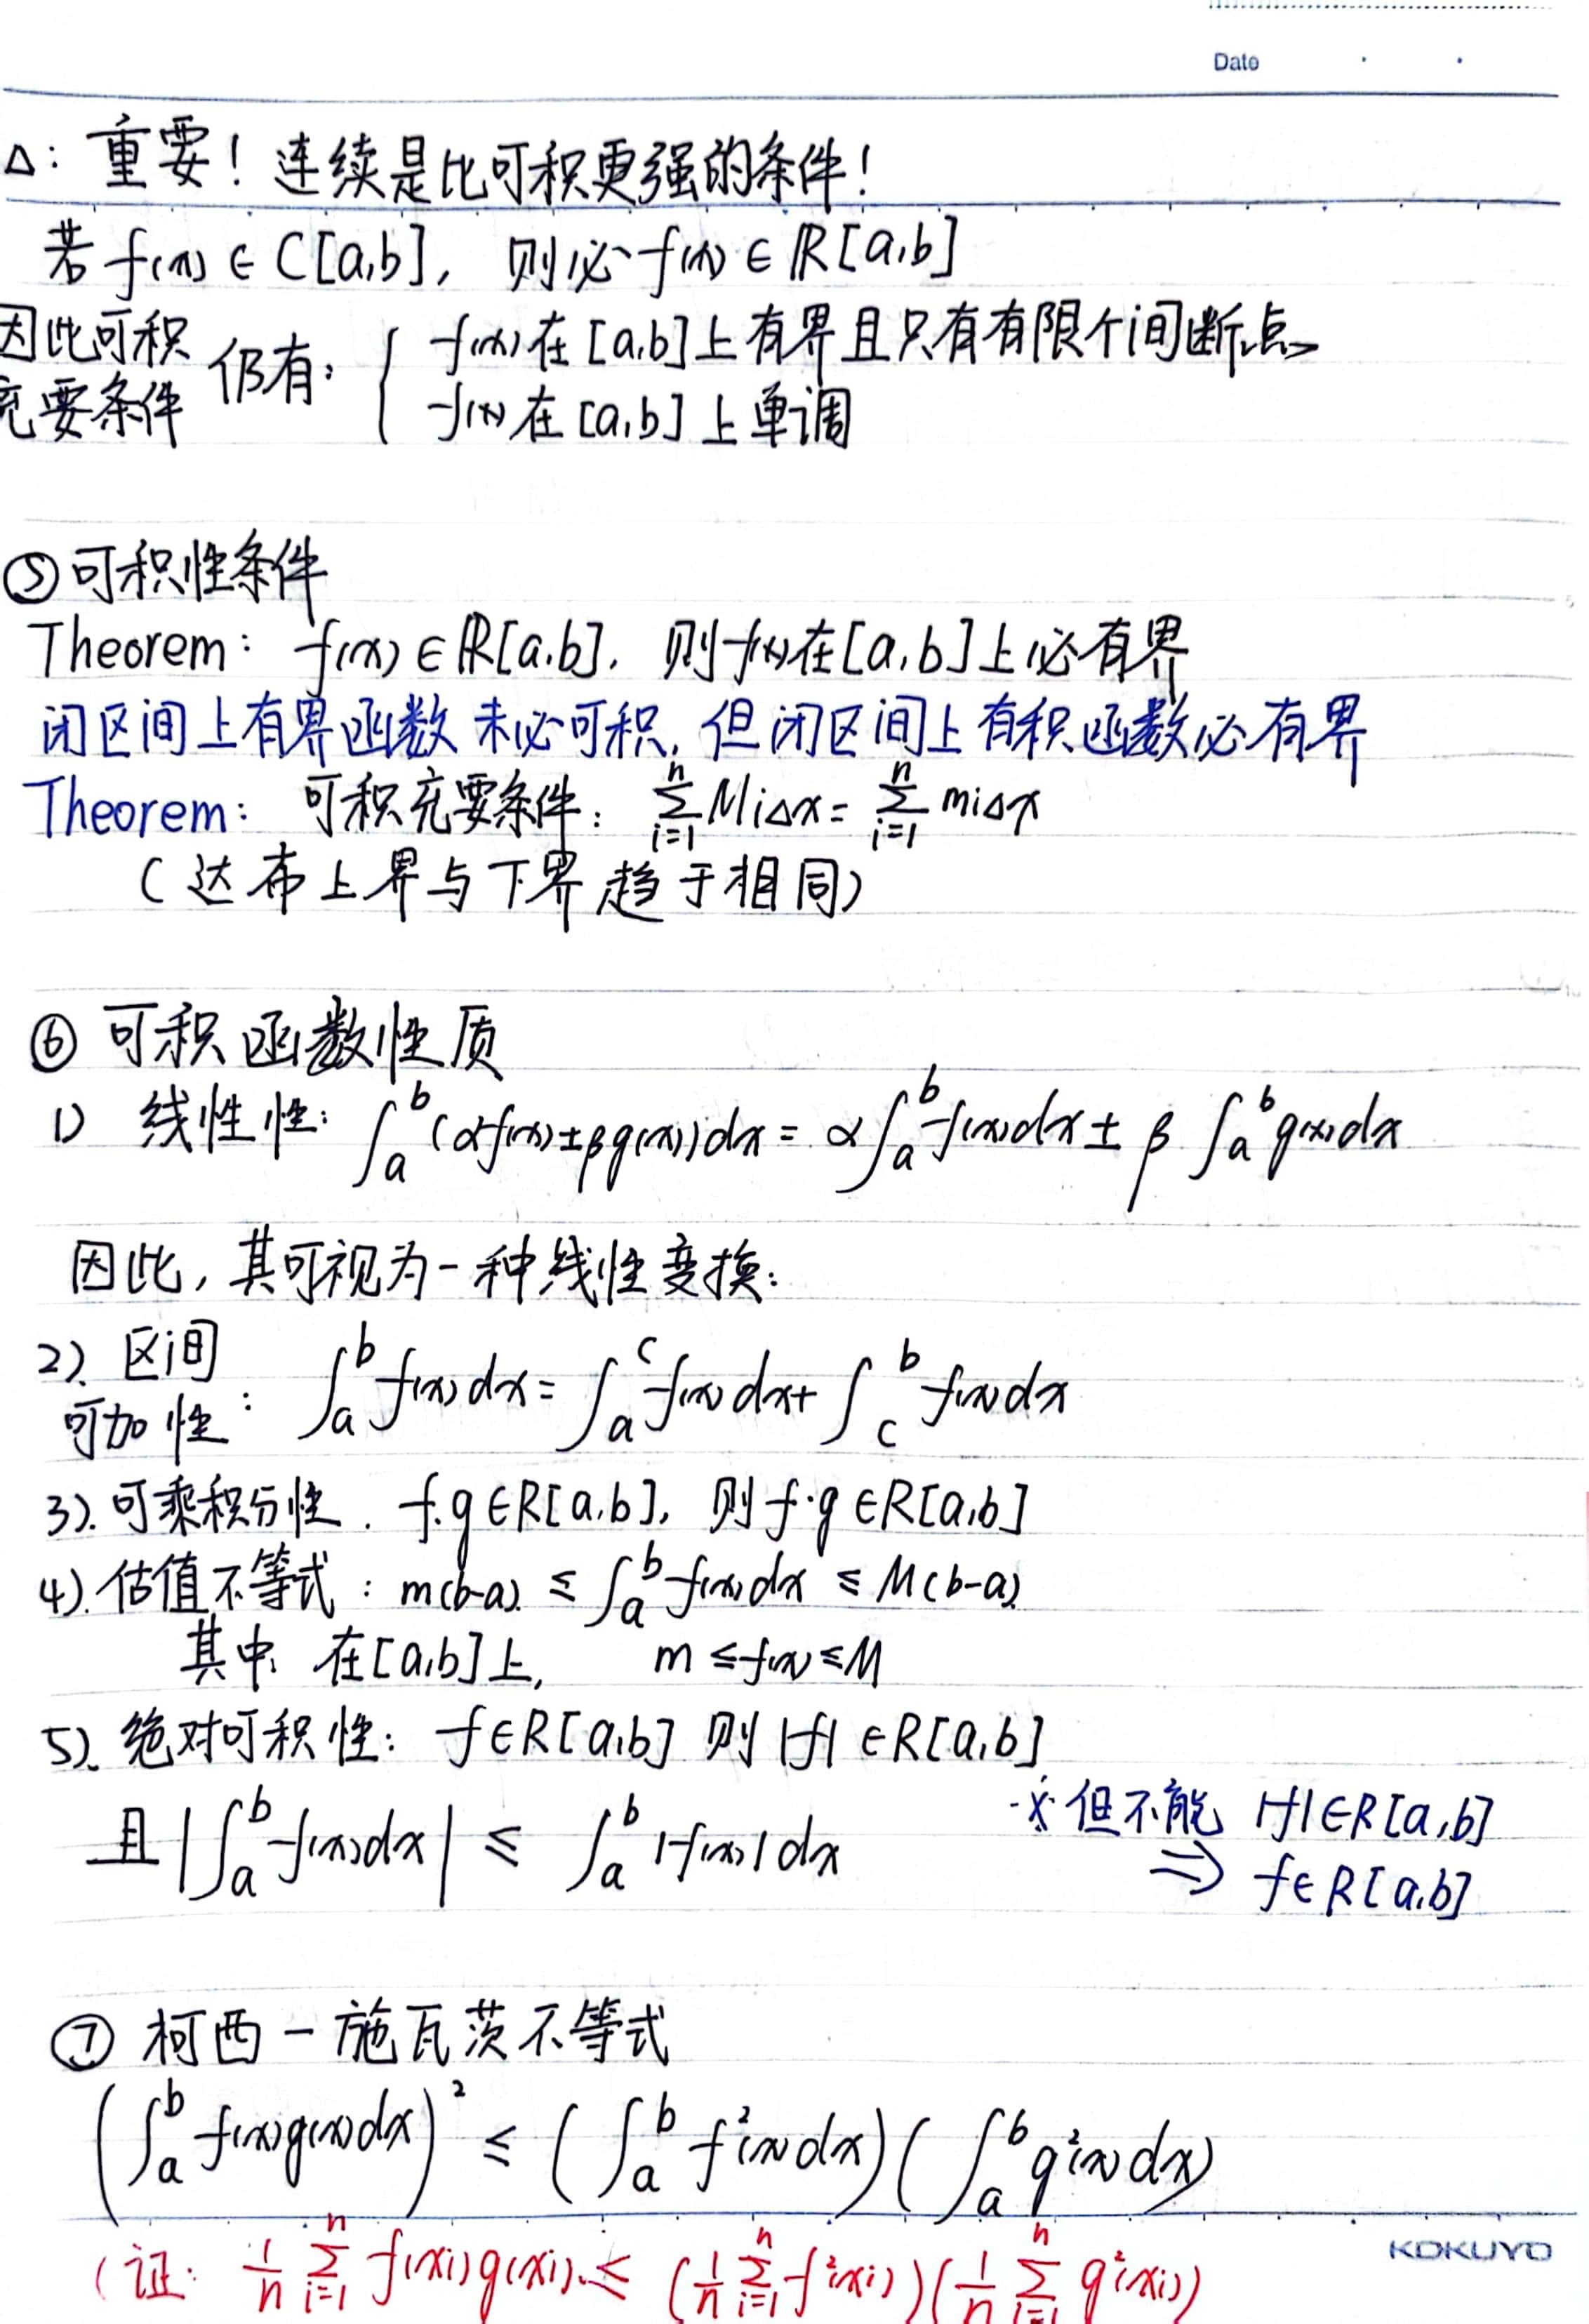 Date
Δ: 重要！连续是比可积更强的条件！
若 f(x) ∈ C[a,b], 则必 f(x) ∈ ℝ[a,b]
因此可积充要条件 仍有: { f(x)在[a,b]上有界且只有有限个间断点
f(x)在[a,b]上单调
⑤ 可积性条件
Theorem: f(x) ∈ ℝ[a,b], 则f(x)在[a,b]上必有界
闭区间上有界函数未必可积, 但闭区间上有积函数必有界
Theorem: 可积充要条件: \sum_{i=1}^{n} MiΔx = \sum_{i=1}^{n} miΔx
(达布上界与下界趋于相同)
⑥ 可积函数性质
1) 线性性: ∫_a^b (αf(x)±βg(x))dx = α∫_a^b f(x)dx ± β ∫_a^b g(x)dx
因此, 其可视为一种线性变换:
2). 区间可加性: ∫_a^b f(x)dx = ∫_a^c f(x)dx + ∫_c^b f(x)dx
3). 可乘积分性. f.g ∈R[a,b], 则 f·g ∈R[a,b]
4). 估值不等式: m(b-a). ≤ ∫_a^b f(x)dx ≤ M(b-a)
其中, 在[a,b]上, m ≤f(x)≤M
5). 绝对可积性: f∈R[a,b] 则 |f| ∈R[a,b]
且 |∫_a^b f(x)dx| ≤ ∫_a^b |f(x)|dx
※ 但不能 |f|∈R[a,b]
⇒ f∈R[a,b]
⑦ 柯西-施瓦茨不等式
(∫_a^b f(x)g(x)dx)² ≤ (∫_a^b f²(x)dx)(∫_a^b g²(x)dx)
(证: \frac{1}{n} \sum_{i=1}^{n} f(xi)g(xi). ≤ (\frac{1}{n} \sum_{i=1}^{n} f²(xi))(\frac{1}{n} \sum_{i=1}^{n} g²(xi))
KOKUYO